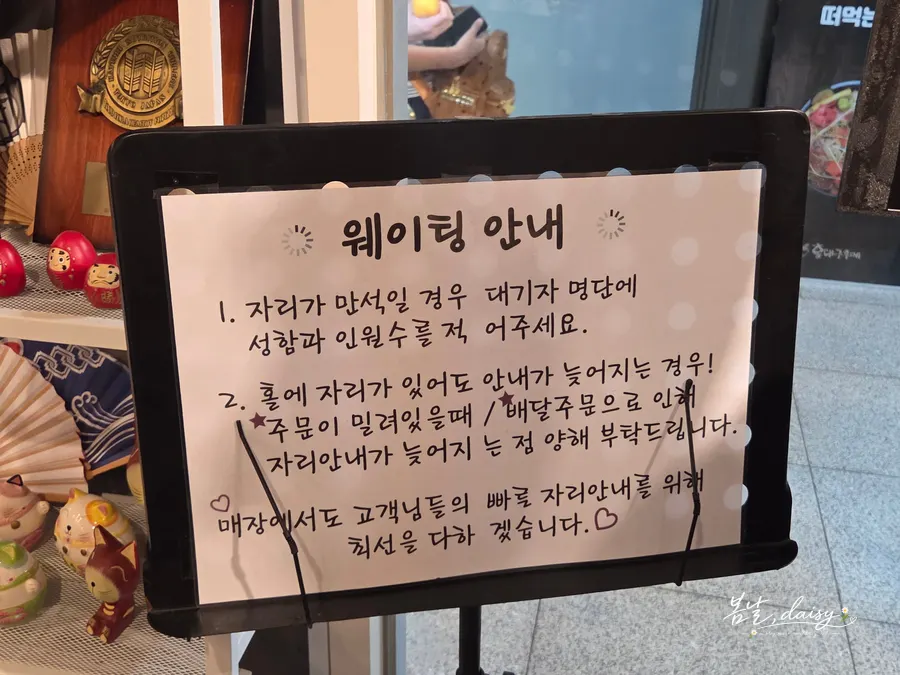 떠먹는
웨이팅 안내
1. 자리가 만석일 경우 대기자 명단에
성함과 인원수를 적 어주세요.
2. 홀에 자리가 있어도 안내가 늦어지는 경우!
★주문이 밀려있을때 / ★배달주문으로 인해
자리안내가 늦어지 는 점 양해 부탁드립니다.
♡
매장에서도 고객님들의 빠른 자리안내를 위해
최선을 다하 겠습니다.♡
봄날, daisy